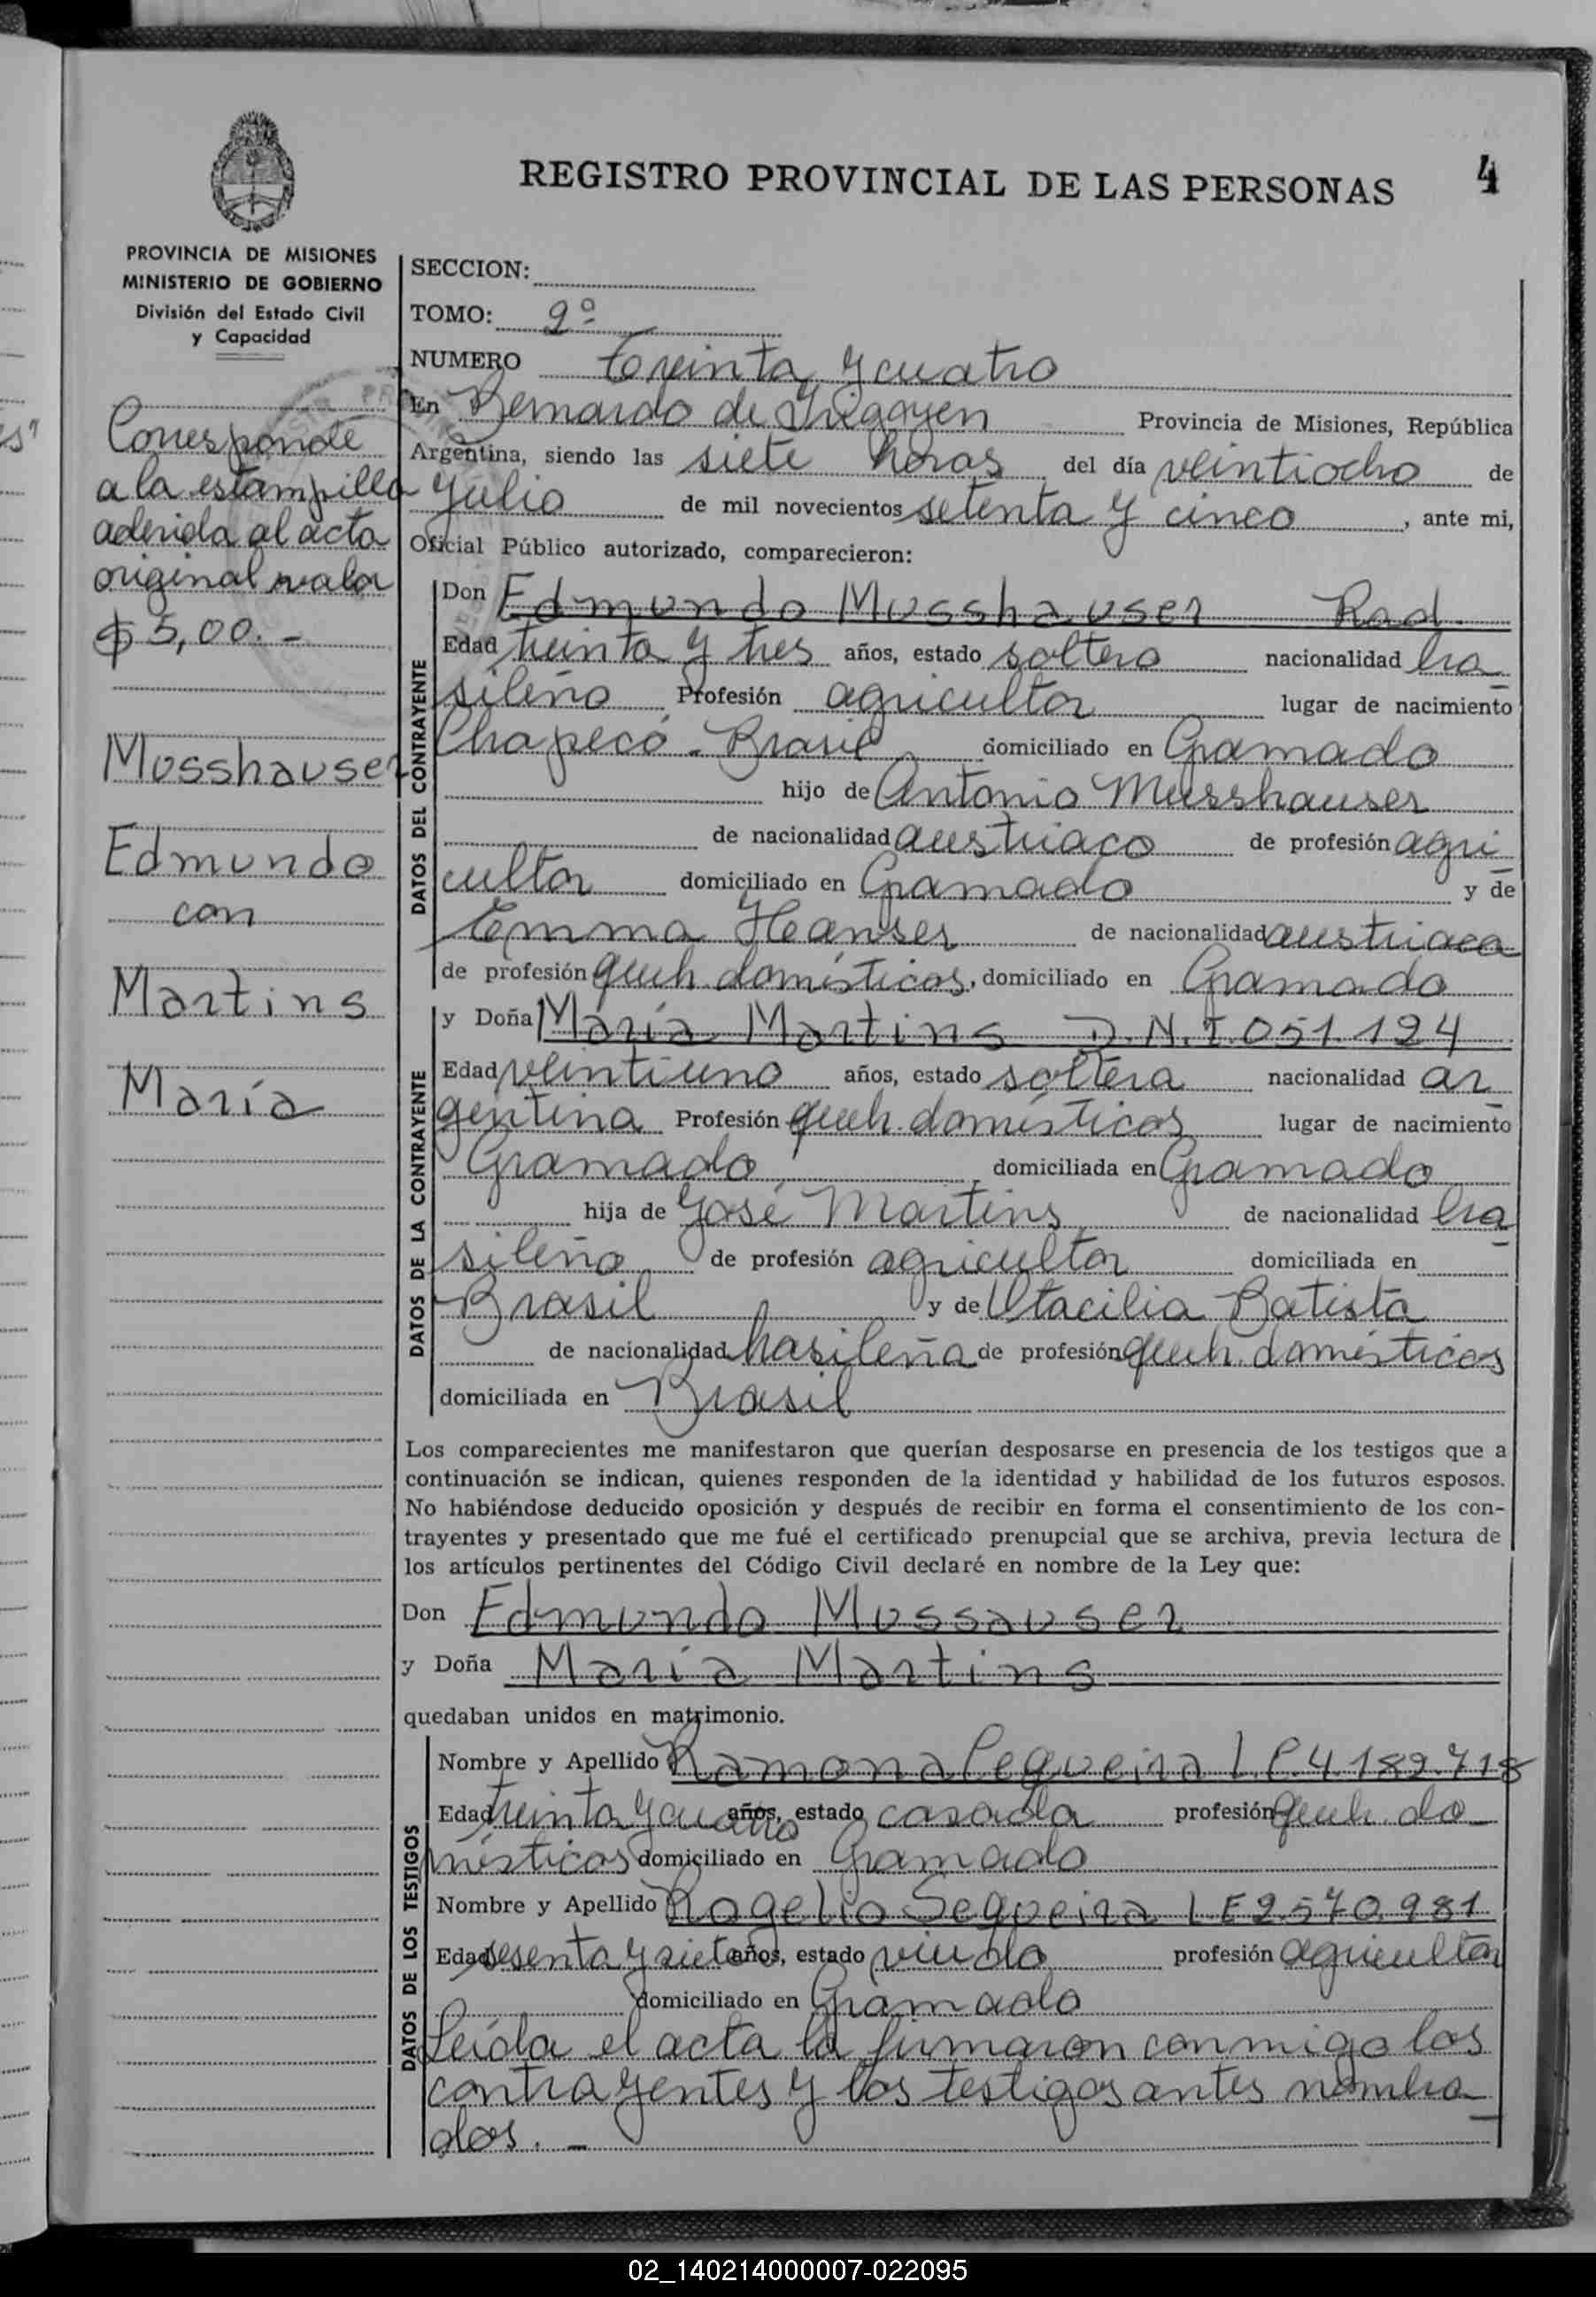 REGISTRO PROVINCIAL DE LAS PERSONAS
4
PROVINCIA DE MISIONES
MINISTERIO DE GOBIERNO
División del Estado Civil
y Capacidad
Corresponde
a la estampilla
aderida al acta
original valor
$ 5,00.-
Mosshauser
Edmundo
con
Martins
María
SECCION:
TOMO: 2º
NUMERO Treinta y cuatro
En Bernardo de Irigoyen Provincia de Misiones, República
Argentina, siendo las siete horas del día veintiocho de
julio de mil novecientos setenta y cinco, ante mi,
Oficial Público autorizado, comparecieron:
DATOS DEL CONTRAYENTE
Don Edmundo Musshauser Rad.
Edad treinta y tres años, estado soltero nacionalidad bra
sileño Profesión agricultor lugar de nacimiento
Chapecó - Brasil domiciliado en Gramado
hijo de Antonio Musshauser
de nacionalidad austriaco de profesión agri
cultor domiciliado en Gramado y de
Emma Heanser de nacionalidad austriaca
de profesión queh. domésticos, domiciliado en Gramado
DATOS DE LA CONTRAYENTE
y Doña María Martins D.N.I. 051.124
Edad veintiuno años, estado soltera nacionalidad ar
gentina Profesión queh. domésticos lugar de nacimiento
Gramado domiciliada en Gramado
hija de José Martins de nacionalidad bra
sileño de profesión agricultor domiciliada en
Brasil y de Otacilia Batista
de nacionalidad brasileña de profesión queh. domésticos
domiciliada en Brasil
Los comparecientes me manifestaron que querían desposarse en presencia de los testigos que a
continuación se indican, quienes responden de la identidad y habilidad de los futuros esposos.
No habiéndose deducido oposición y después de recibir en forma el consentimiento de los con-
trayentes y presentado que me fué el certificado prenupcial que se archiva, previa lectura de
los artículos pertinentes del Código Civil declaré en nombre de la Ley que:
Don Edmundo Mussauser
y Doña María Martins
quedaban unidos en matrimonio.
DATOS DE LOS TESTIGOS
Nombre y Apellido Ramona Cequeira L.C. 4.182.718
Edad treinta y cuatro años, estado casada profesión queh. do
mésticos domiciliado en Gramado
Nombre y Apellido Rogelio Sequeira L E 2.570.981
Edad sesenta y siete años, estado viudo profesión agricultor
domiciliado en Gramado
Leída el acta la firmaron conmigo los
contrayentes y los testigos antes nombra
dos. -
02_140214000007-022095